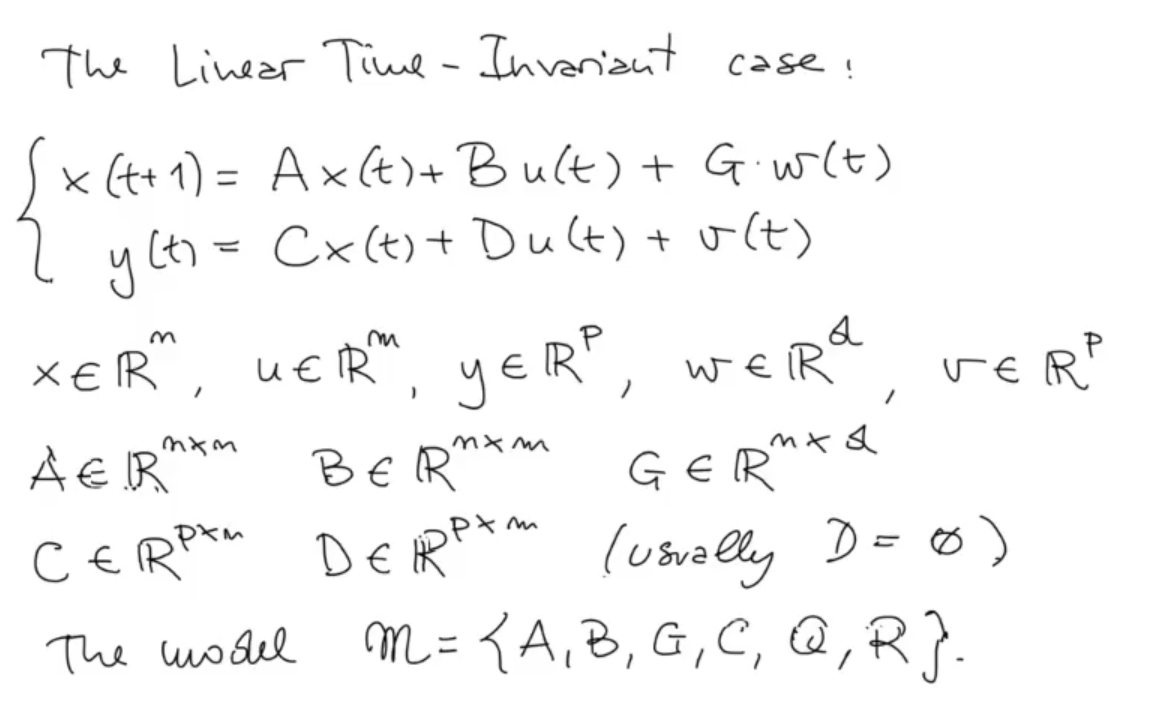 The Linear Time-Invariant case:
{ x(t+1) = Ax(t) + Bu(t) + G·w(t)
y(t) = Cx(t) + Du(t) + v(t)
x ∈ ℝⁿ, u ∈ ℝᵐ, y ∈ ℝᵖ, w ∈ ℝᵈ, v ∈ ℝᵖ
A ∈ ℝⁿˣⁿ B ∈ ℝⁿˣᵐ G ∈ ℝⁿˣᵈ
C ∈ ℝᵖˣⁿ D ∈ ℝᵖˣᵐ (usually D = ∅)
The model M = {A, B, G, C, Q, R}.